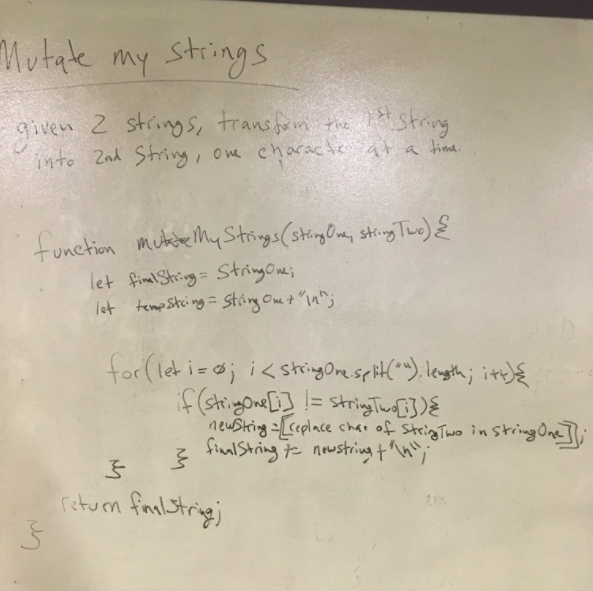 Mutate my strings
given 2 strings, transform the 1st String
into 2nd String, one characte at a time.
function mutateMyStrings(stringOne, stringTwo){
let finalString = StringOne;
let tempString = StringOne + "\n";
for(let i = 0; i < stringOne.split("").length; i++){
if (stringOne[i] != stringTwo[i]){
newString = [[replace char of StringTwo in StringOne]];
finalString += newstring + "\n";
} }
return finalString;
}